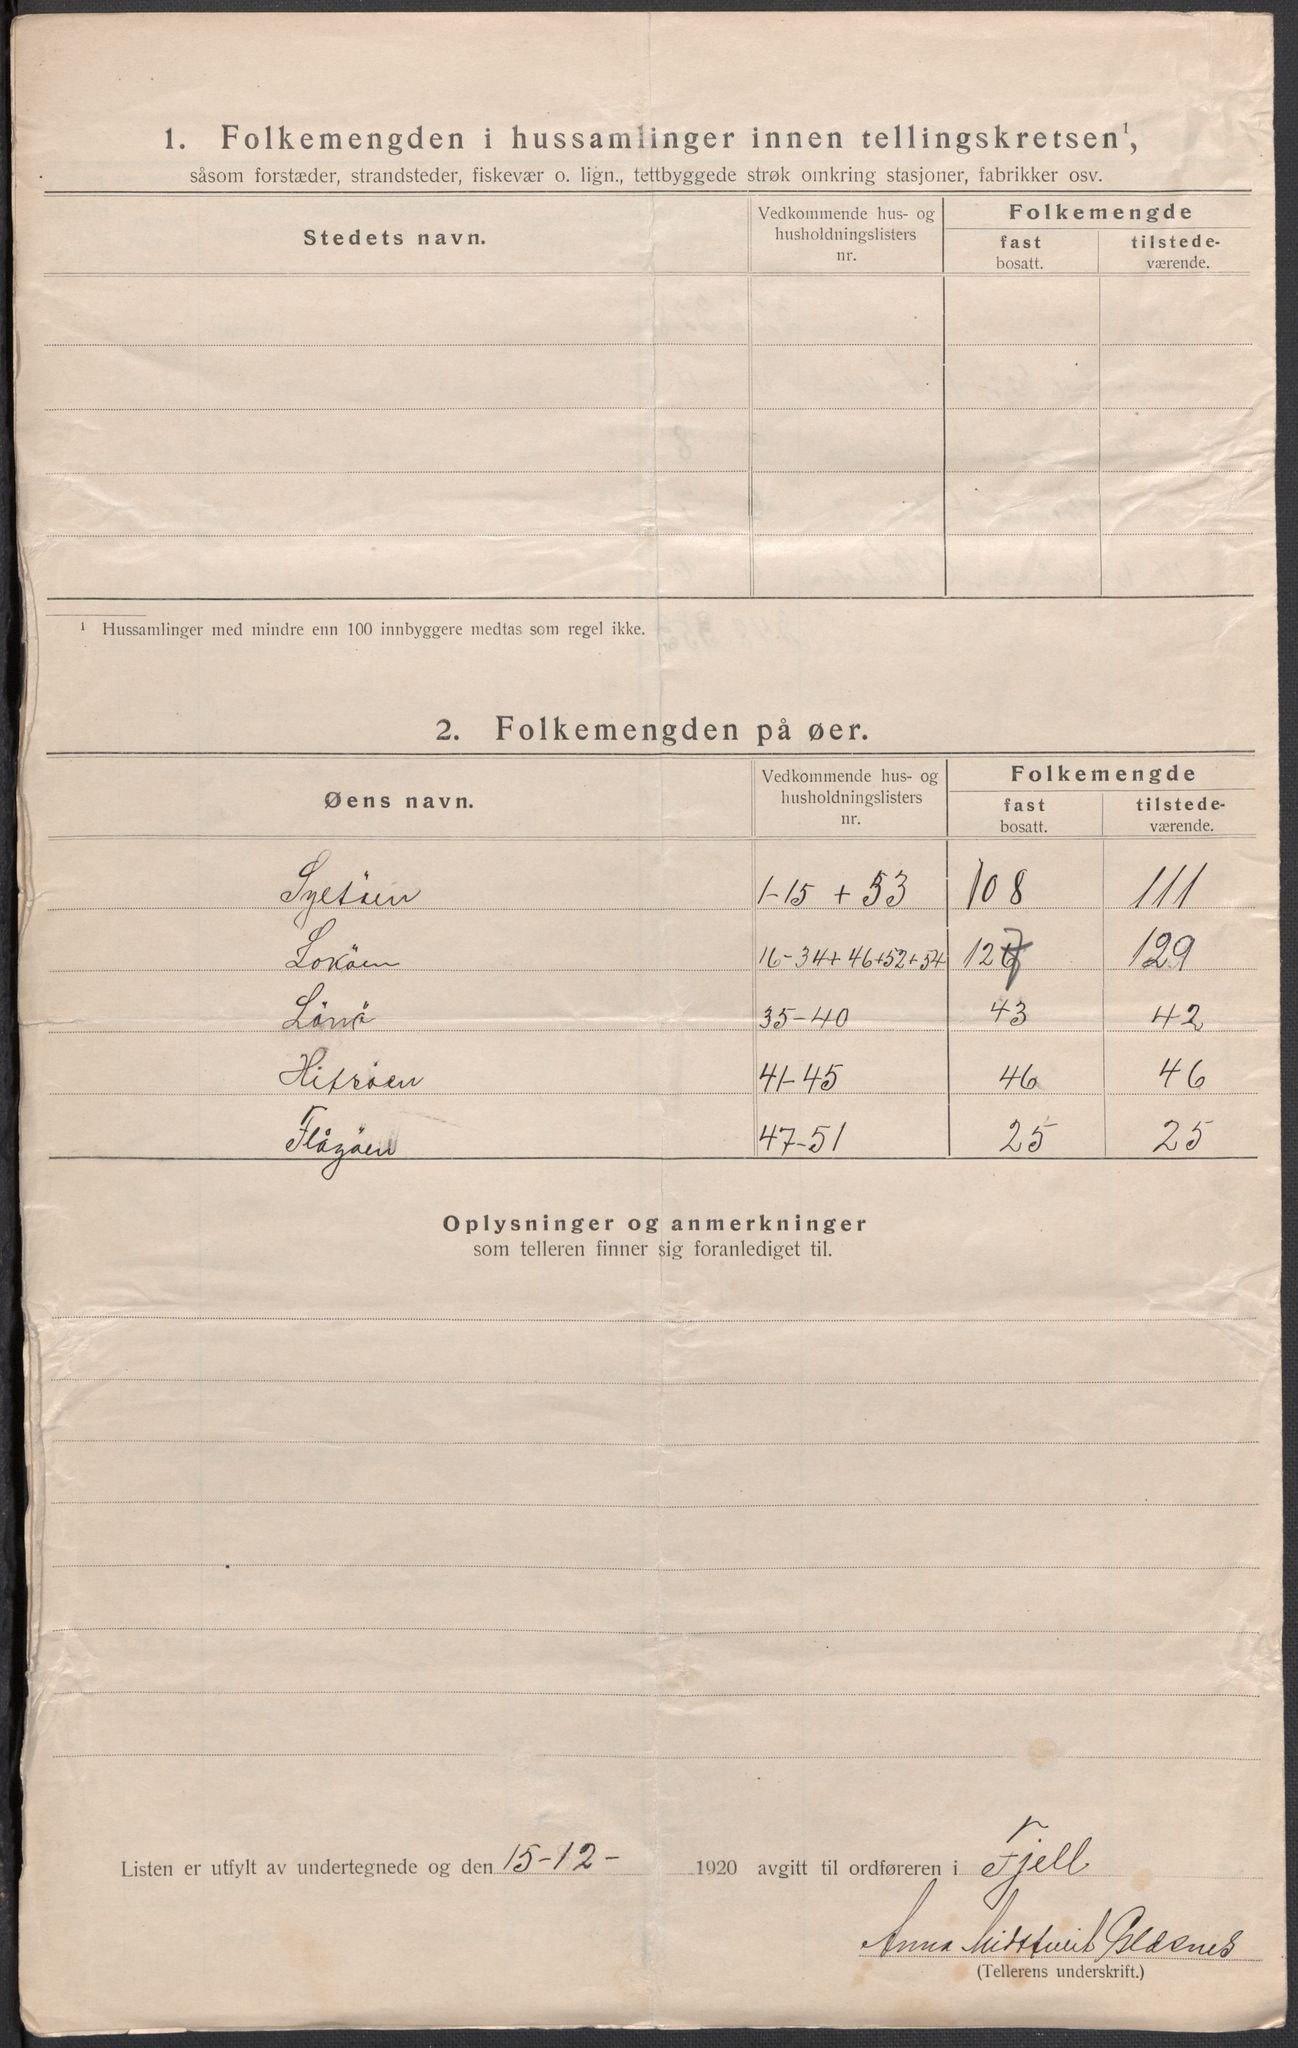 1. Folkemengden i hussamlinger innen tellingskretsen¹,
såsom forstæder, strandsteder, fiskevær o. lign., tettbyggede strøk omkring stasjoner, fabrikker osv.
Stedets navn.
Vedkommende hus- og
husholdningslisters
nr.
Folkemengde
fast
bosatt.
tilstede-
værende.
¹ Hussamlinger med mindre enn 100 innbyggere medtas som regel ikke.
2. Folkemengden på øer.
Øens navn.
Vedkommende hus- og
husholdningslisters
nr.
Folkemengde
fast
bosatt.
tilstede-
værende.
Syltöen 1-15 + 53 108 111
Loköen 16-34+46+52+54 127 129
Lönö 35-40 43 42
Hitröen 41-45 46 46
Flågöen 47-51 25 25
Oplysninger og anmerkninger
som telleren finner sig foranlediget til.
Listen er utfylt av undertegnede og den 15-12- 1920 avgitt til ordføreren i Fjell
Anna Midttveit Glesnes
(Tellerens underskrift.)